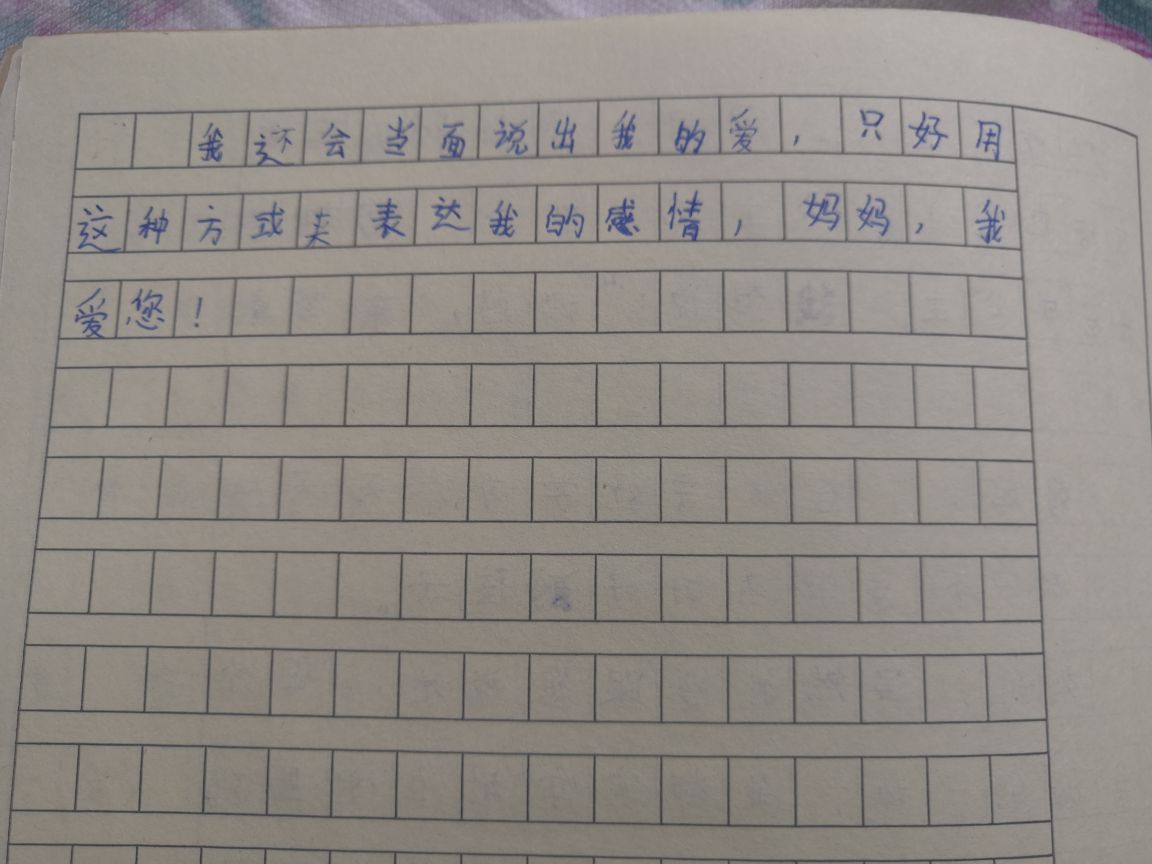 我这不会当面说出我的爱，只好用
这种方或来表达我的感情，妈妈，我
爱您！